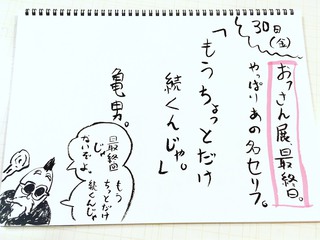 30日(金)
おっさん展、最終日。
やっぱりあの名セリフ。
「もうちょっとだけ
続くんじゃ。」
亀男。
最終回
じゃ
ないぞよ。
もう
ちっとだけ
続くんじゃ